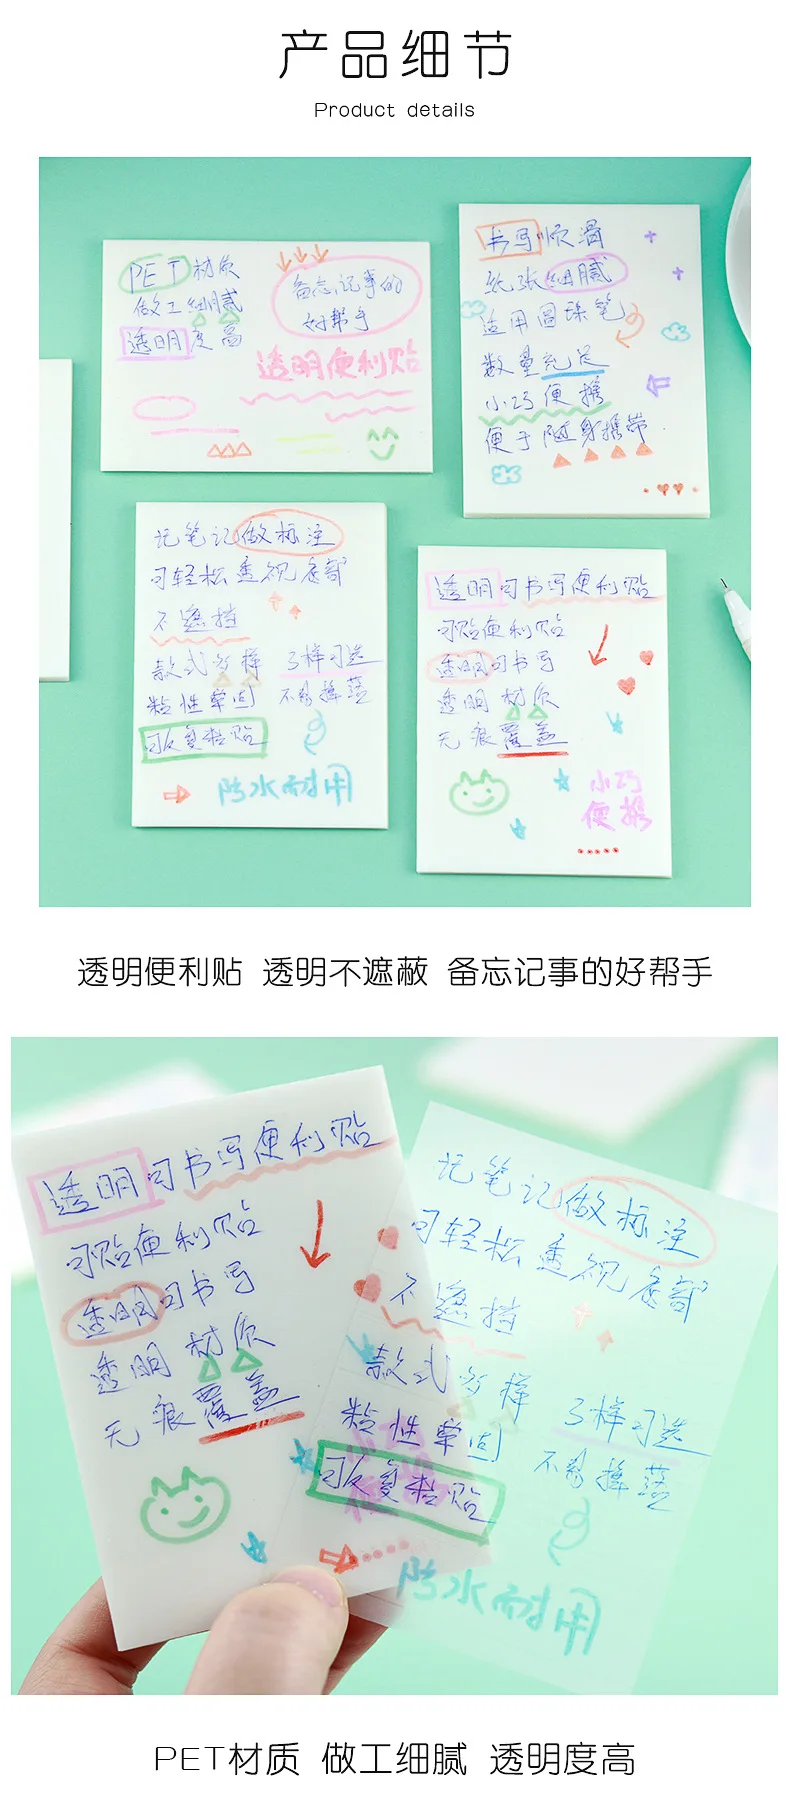 产品细节
Product details
PET材质
做工细腻
透明度高
备忘记事的
好帮手
透明便利贴
书写顺滑
纸张细腻
适用圆珠笔
数量充足
小巧便携
便于随身携带.
记笔记做标注
可轻松透视底部
不遮挡
款式多样 3样可选
粘性牢固 不易掉落
可反复粘贴
防水耐用
透明可书写便利贴
可贴便利贴
透明可书写
透明材质
无痕覆盖
小巧
便携
透明便利贴 透明不遮蔽 备忘记事的好帮手
透明可书写便利贴
可贴便利贴
透明可书写
透明材质
无痕覆盖
记笔记做标注
可轻松透视底部
不遮挡
款式多样 3样可选
粘性牢固 不易掉落
可反复粘贴
防水耐用
PET材质 做工细腻 透明度高